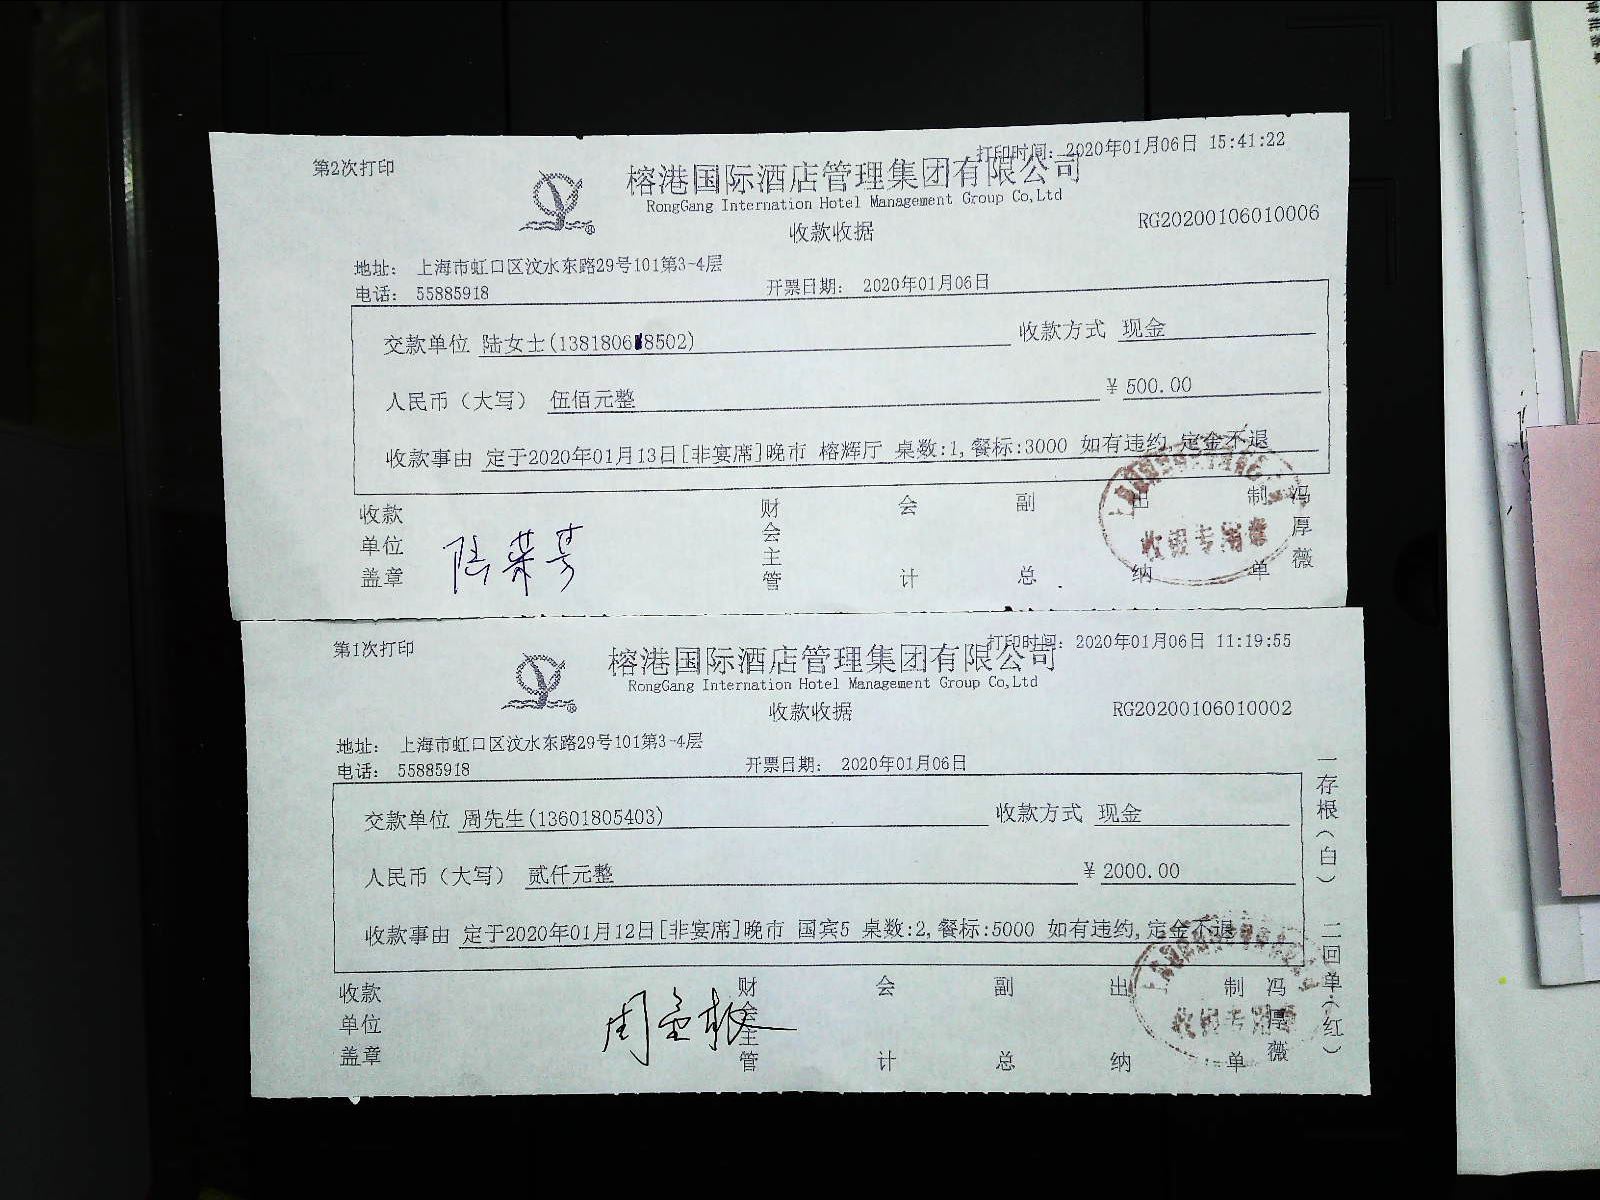 第2次打印
打印时间: 2020年01月06日 15:41:22
榕港国际酒店管理集团有限公司
RongGang Internation Hotel Management Group Co,Ltd
收款收据
RG20200106010006
地址: 上海市虹口区汶水东路29号101第3-4层
电话: 55885918
开票日期: 2020年01月06日
交款单位 陆女士(1381806 8502)
收款方式 现金
人民币(大写) 伍佰元整
¥ 500.00
收款事由 定于2020年01月13日[非宴席]晚市 榕辉厅 桌数:1,餐标:3000 如有违约,定金不退
收款单位盖章
陆荣芳
财会主管
会计
副总
出纳
制单
冯厚薇
收银专用章
第1次打印
打印时间: 2020年01月06日 11:19:55
榕港国际酒店管理集团有限公司
RongGang Internation Hotel Management Group Co,Ltd
收款收据
RG20200106010002
地址: 上海市虹口区汶水东路29号101第3-4层
电话: 55885918
开票日期: 2020年01月06日
交款单位 周先生(13601805403)
收款方式 现金
人民币(大写) 贰仟元整
¥ 2000.00
收款事由 定于2020年01月12日[非宴席]晚市 国宾5 桌数:2,餐标:5000 如有违约,定金不退
收款单位盖章
周金根
财会主管
会计
副总
出纳
制单
冯厚薇
收银专用章
一存根(白) 二回单(红)